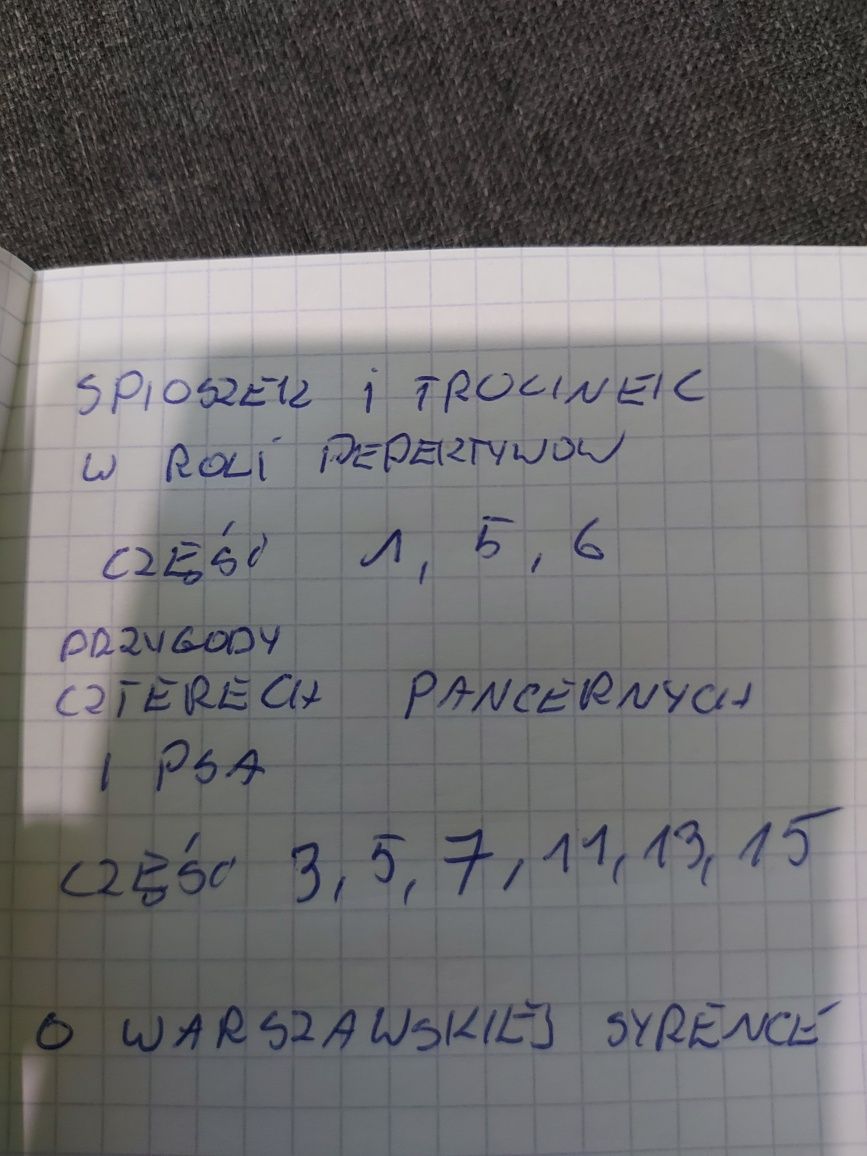 SPIOSZEK i TROCINEK
W ROLI DEDEKTYWOW
CZĘŚĆ 1, 5, 6
PRZYGODY
CZTERECH PANCERNYCH
I PSA
CZĘŚĆ 3, 5, 7, 11, 13, 15
O WARSZAWSKIEJ SYRENCE